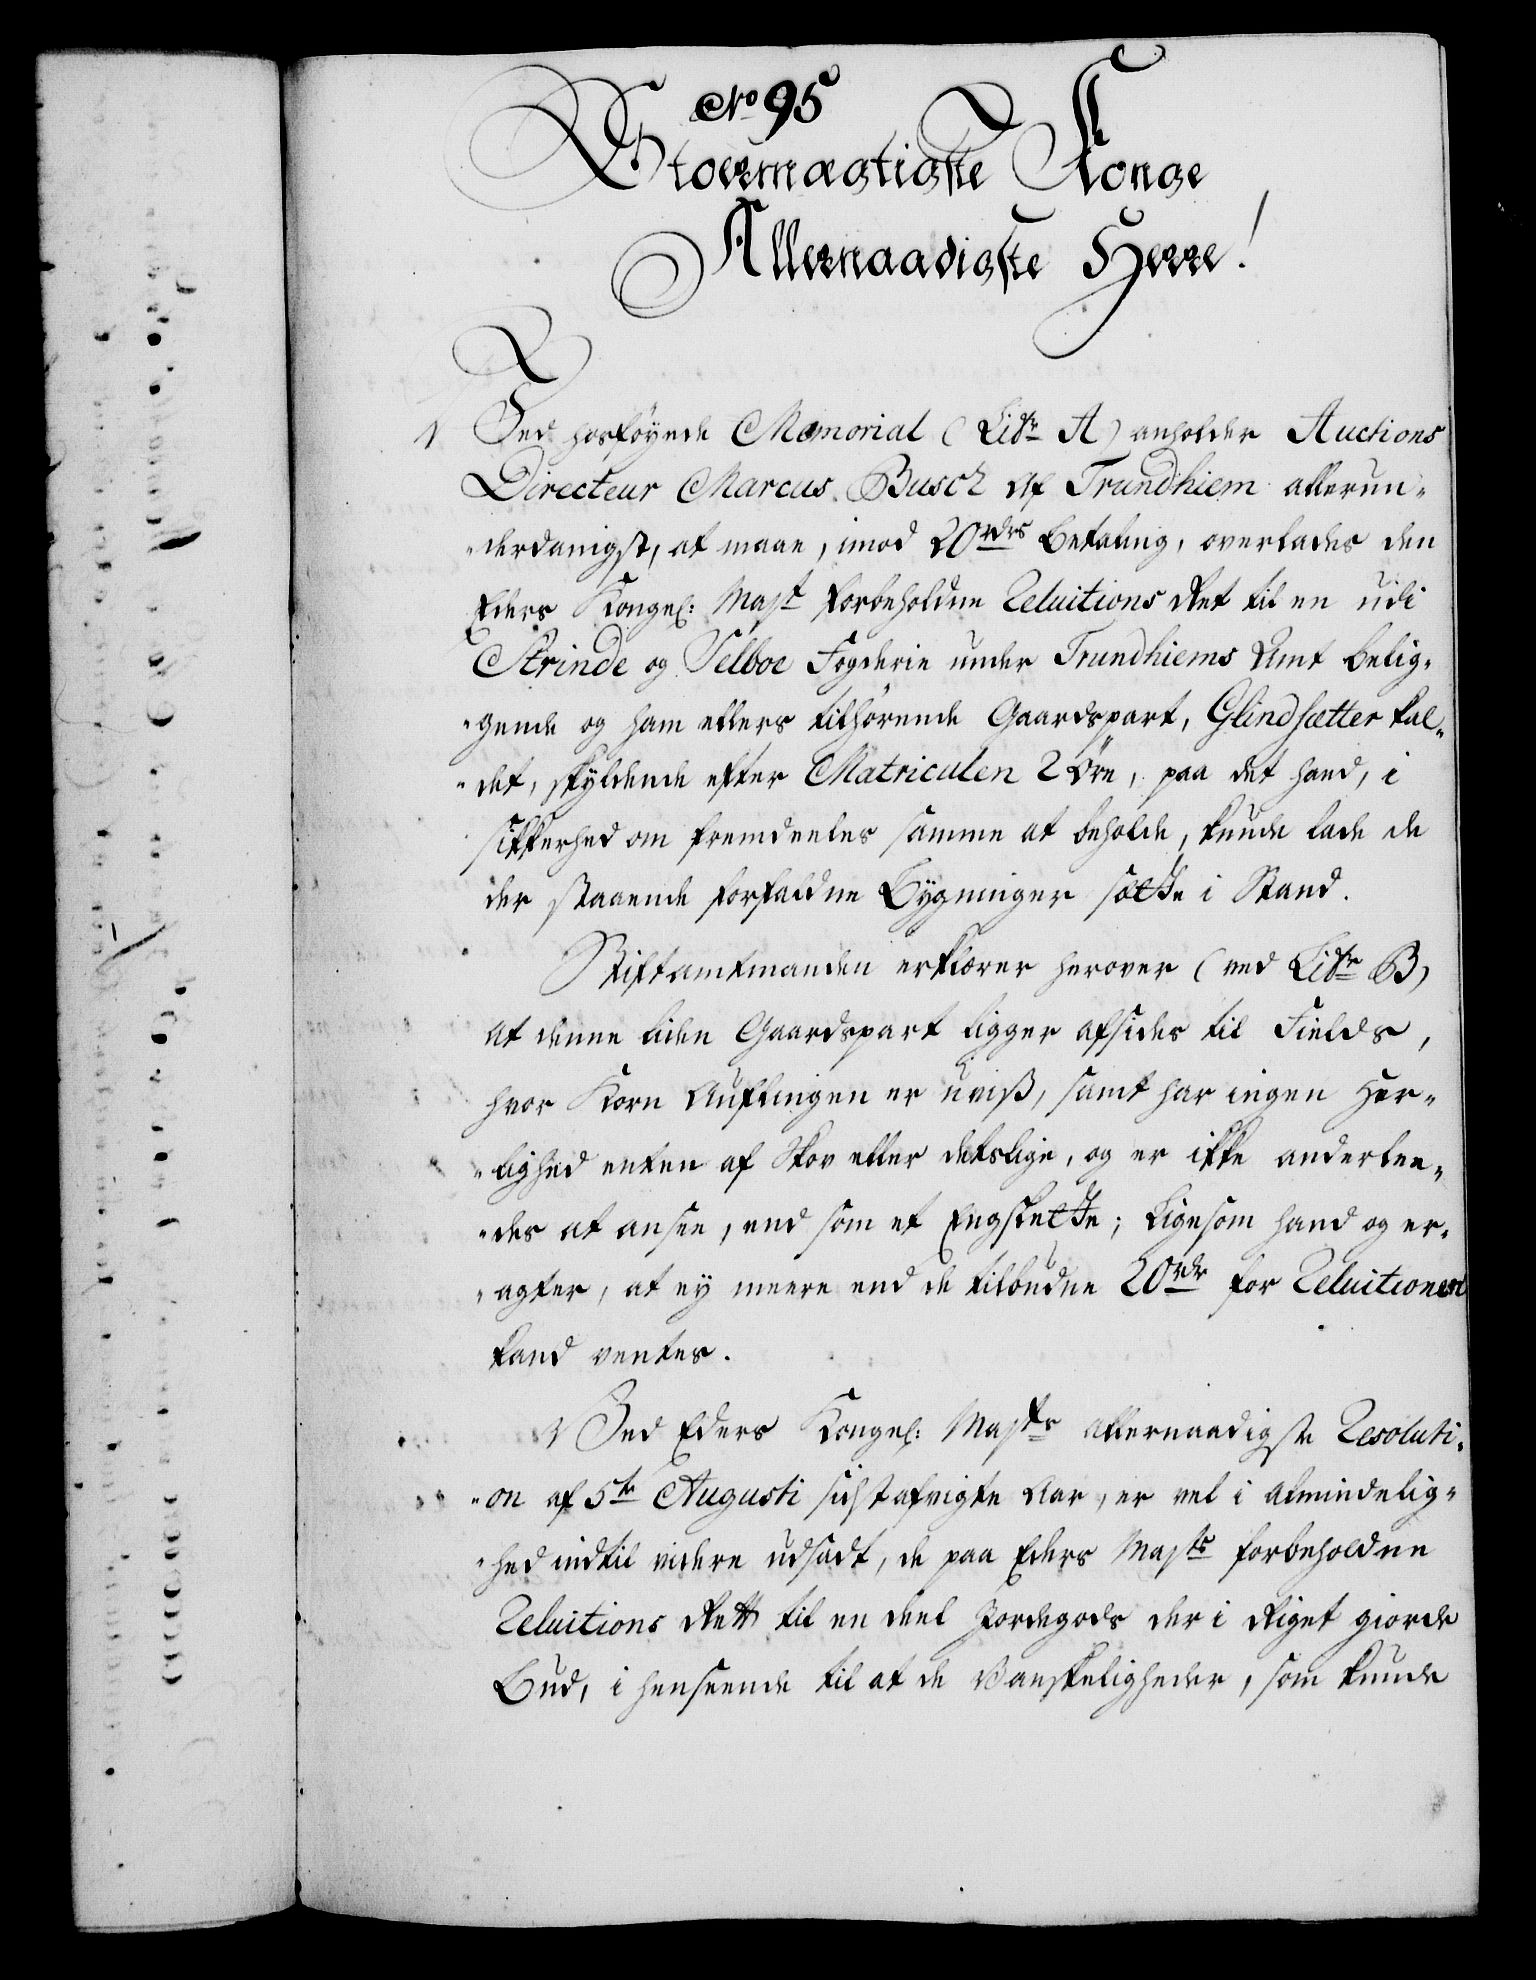 No 95
Stormægtigste Konge
Allernaadigste Herre!
Ved hosføyede Memorial (Litr A) anholder Auctions
Directeur Marcus Busch af Trundhiem allerun-
-derdanigst, at maae, imod 20 rdrs Betaling, overlades den
Eders Kongel: Majt forbeholdne Reluitions Ret til en udi
Strinde og Selboe Fogderie under Trundhiems Amt belig-
-gende og ham ellers tilhørende Gaardspart, Glindsætter kal-
-det, skyldende efter Matriculen 2 Øre, paa det hand, i
sikkerhed om fremdeeles samme at beholde, kunde lade de
der staaende forfaldne Bygninger sætte i Stand.
Stiftamtmanden erklærer herover (ved Litr B)
at denne liden Gaardspart ligger afsides til Fields,
hvor Korn Auflingen er uviss, samt har ingen Her-
-lighed enten af Skov eller deslige, og er ikke anderlee-
-des at ansee, end som et Engslette; Ligesom hand og er-
-agter, at ey meere end de tilbudne 20 rdr for Reluitionen
kand ventes.
Ved Eders Kongel: Majts allernaadigste Resoluti-
-on af 5te Augusti sidstafvigte Aar, er vel i Almindelig-
-hed indtil videre udsadt, de paa Eders Majts forbeholdne
Reluitions Rett til en deel Jordegods der i Riget giorde
Bud, i henseende til at de Vanskeligheder, som kunde